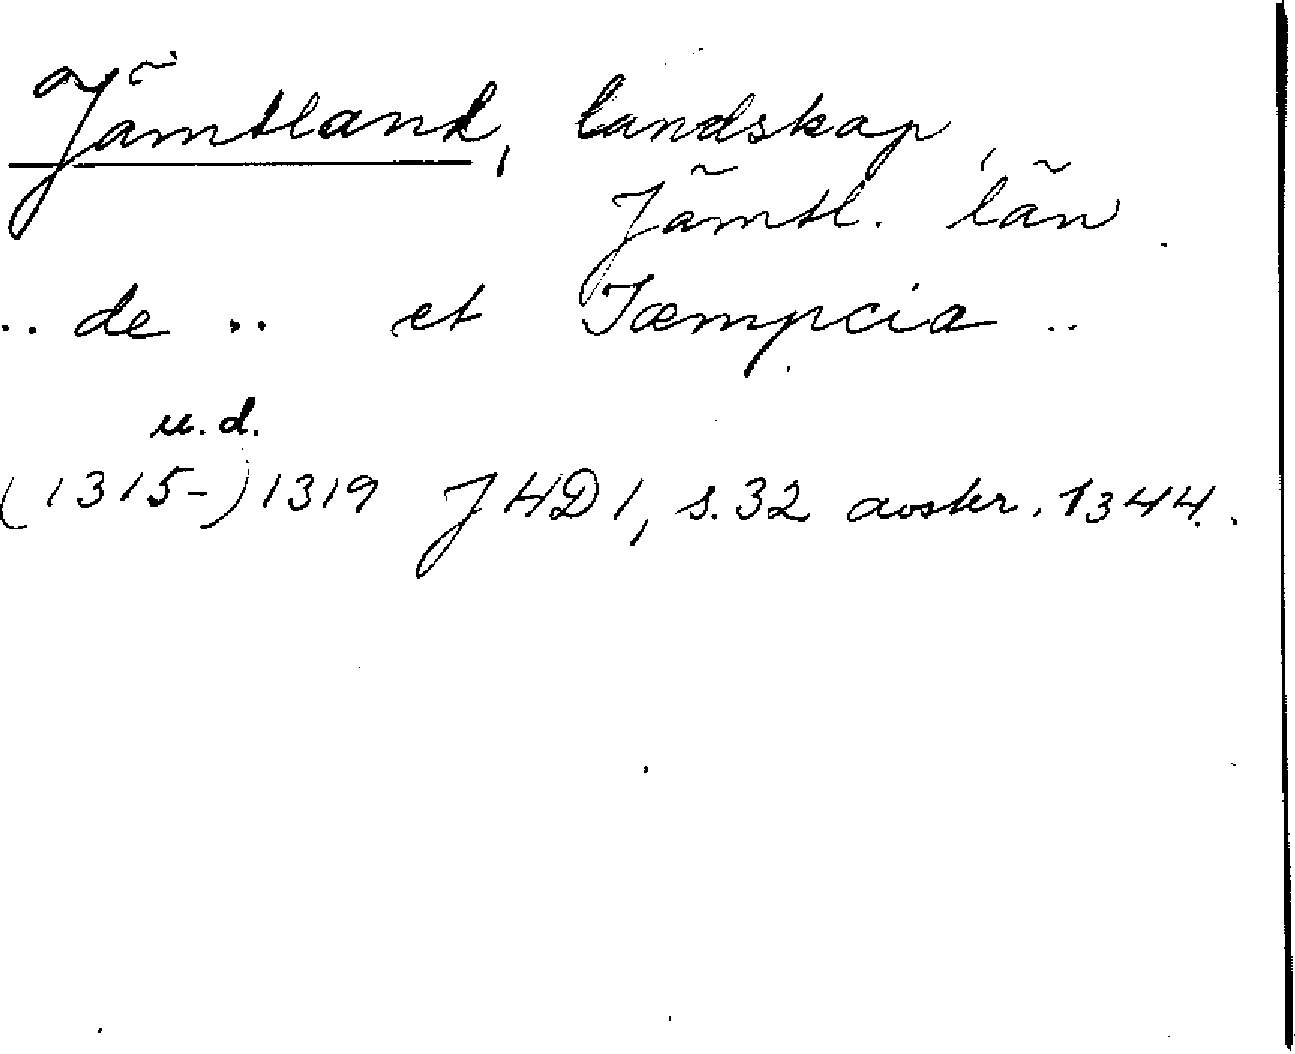 Jämtland, landskap,
Jämtl. län.
.. de .. et Jæmpcia ..
u.d.
(1315-) 1319 JHD 1, s. 32 avskr. 1344.